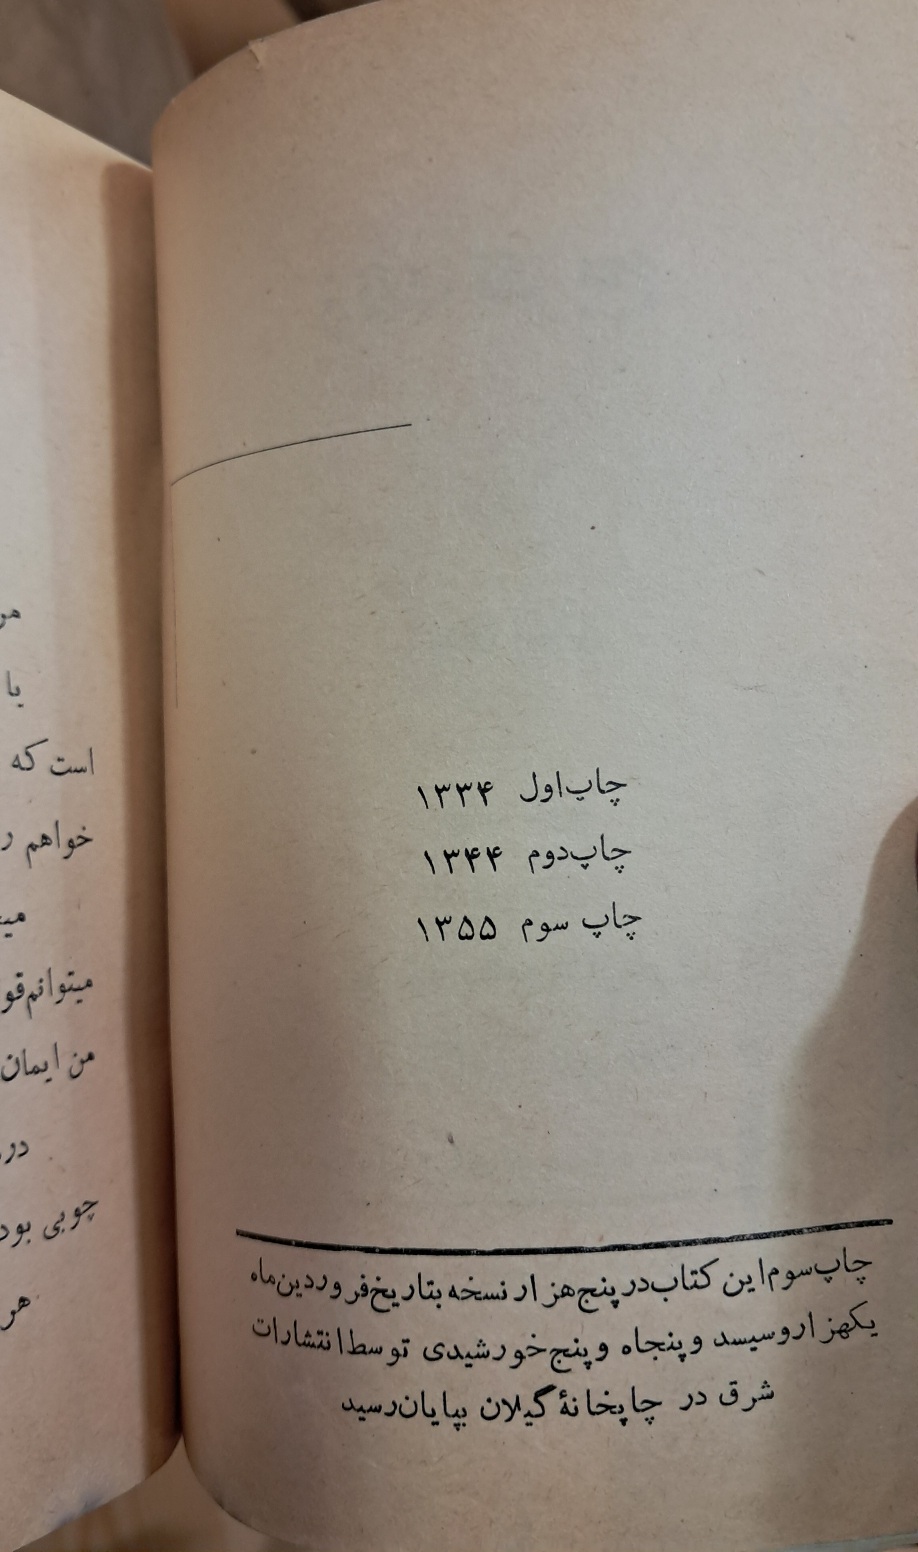 چاپ اول ۱۳۳۴
چاپ دوم ۱۳۴۴
چاپ سوم ۱۳۵۵
چاپ سوم این کتاب در پنج هزار نسخه بتاریخ فروردین ماه
یکهزار و سیسد و پنجاه و پنج خورشیدی توسط انتشارات
شرق در چاپخانهٔ گیلان بپایان رسید
با
است که
خواهم
من ایمان
چوبی بود